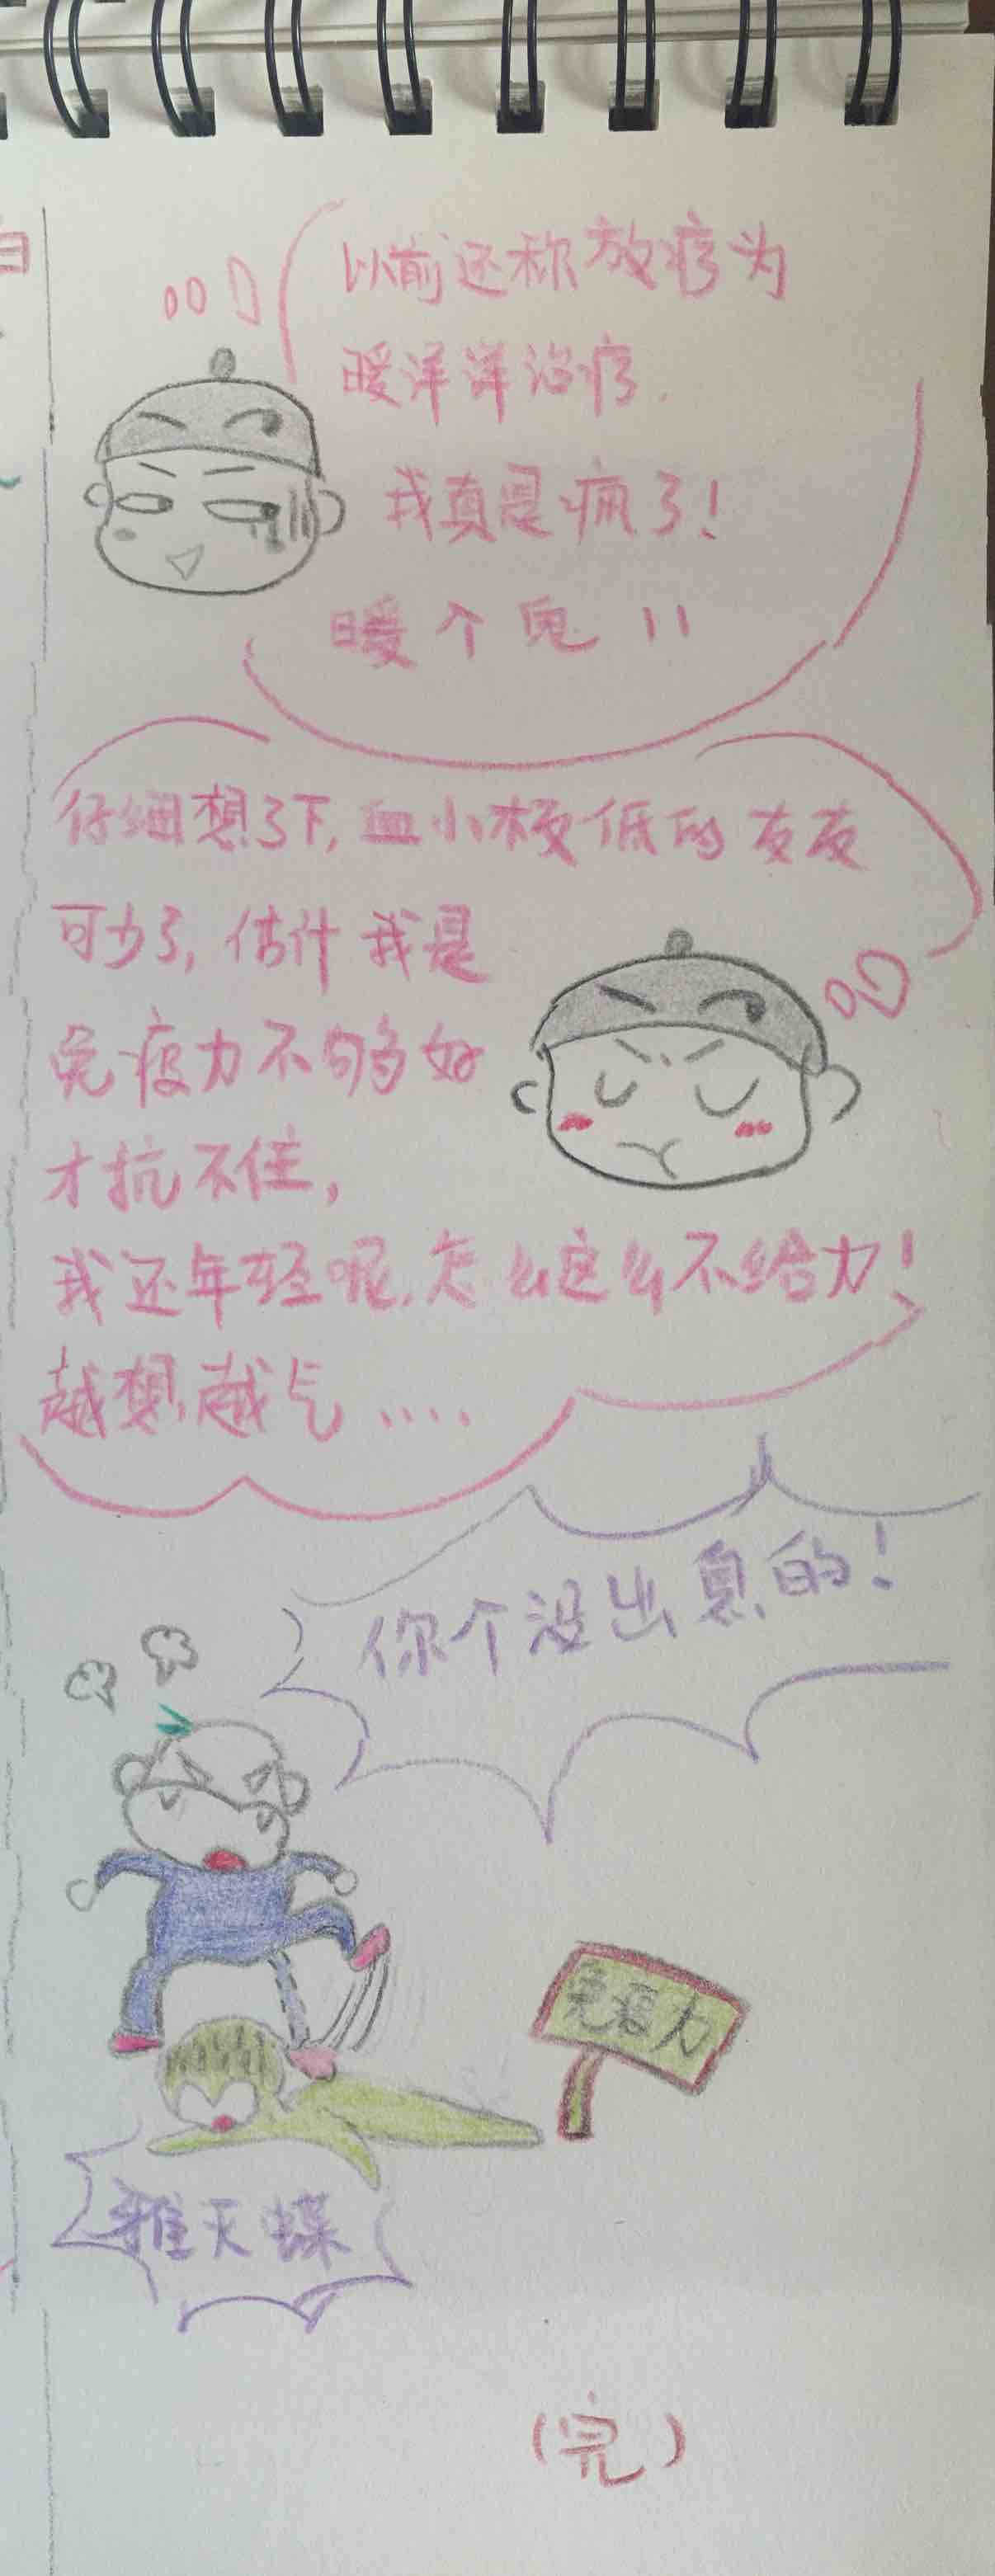 以前还称放疗为
暖洋洋治疗.
我真是疯了!
暖个鬼!!
仔细想了下,血小板低的友友
可多了,估计我是
免疫力不够好
才抗不住,
我还年轻呢,怎么这么不给力!
越想越气....
你个没出息的!
免疫力
雅灭蝶
(完)